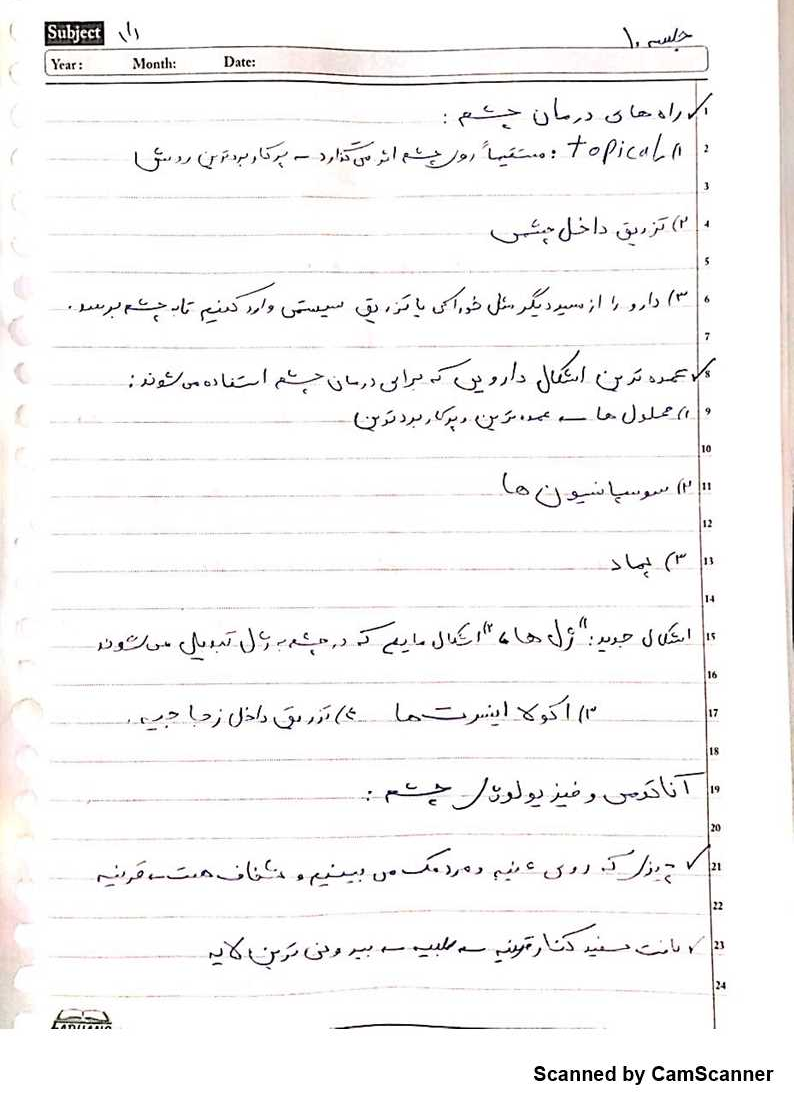 Subject
جلسه ۱۰
Year: Month: Date:
✓ راه های درمان چشم :
۱) topical : مستقیماً روی چشم اثر می‌گذارد → پرکاربردترین روش
۲) تزریق داخل چشمی
۳) دارو را از مسیر دیگر مثل خوراکی یا تزریق سیستمی وارد کنیم تا به چشم برسد.
✓ عمده ترین اشکال دارویی که برای درمان چشم استفاده می‌شوند :
۱) محلول ها → عمده‌ترین و پرکاربردترین
۲) سوسپانسیون ها
۳) پماد
اشکال جدید : ۱) ژل ها ۲) اشکال مایع که در چشم به ژل تبدیل می‌شوند
۳) اکولا اینسرت‌ها ۴) تزریق داخل زجاجیه.
آناتومی و فیزیولوژی چشم :
✓ چیزی که روی عنبیه و مردمک می بینیم و شفاف هست → قرنیه
✓ بافت سفید کنار قرنیه → صلبیه → بیرونی ترین لایه
1
2
3
4
5
6
7
8
9
10
11
12
13
14
15
16
17
18
19
20
21
22
23
24
Scanned by CamScanner